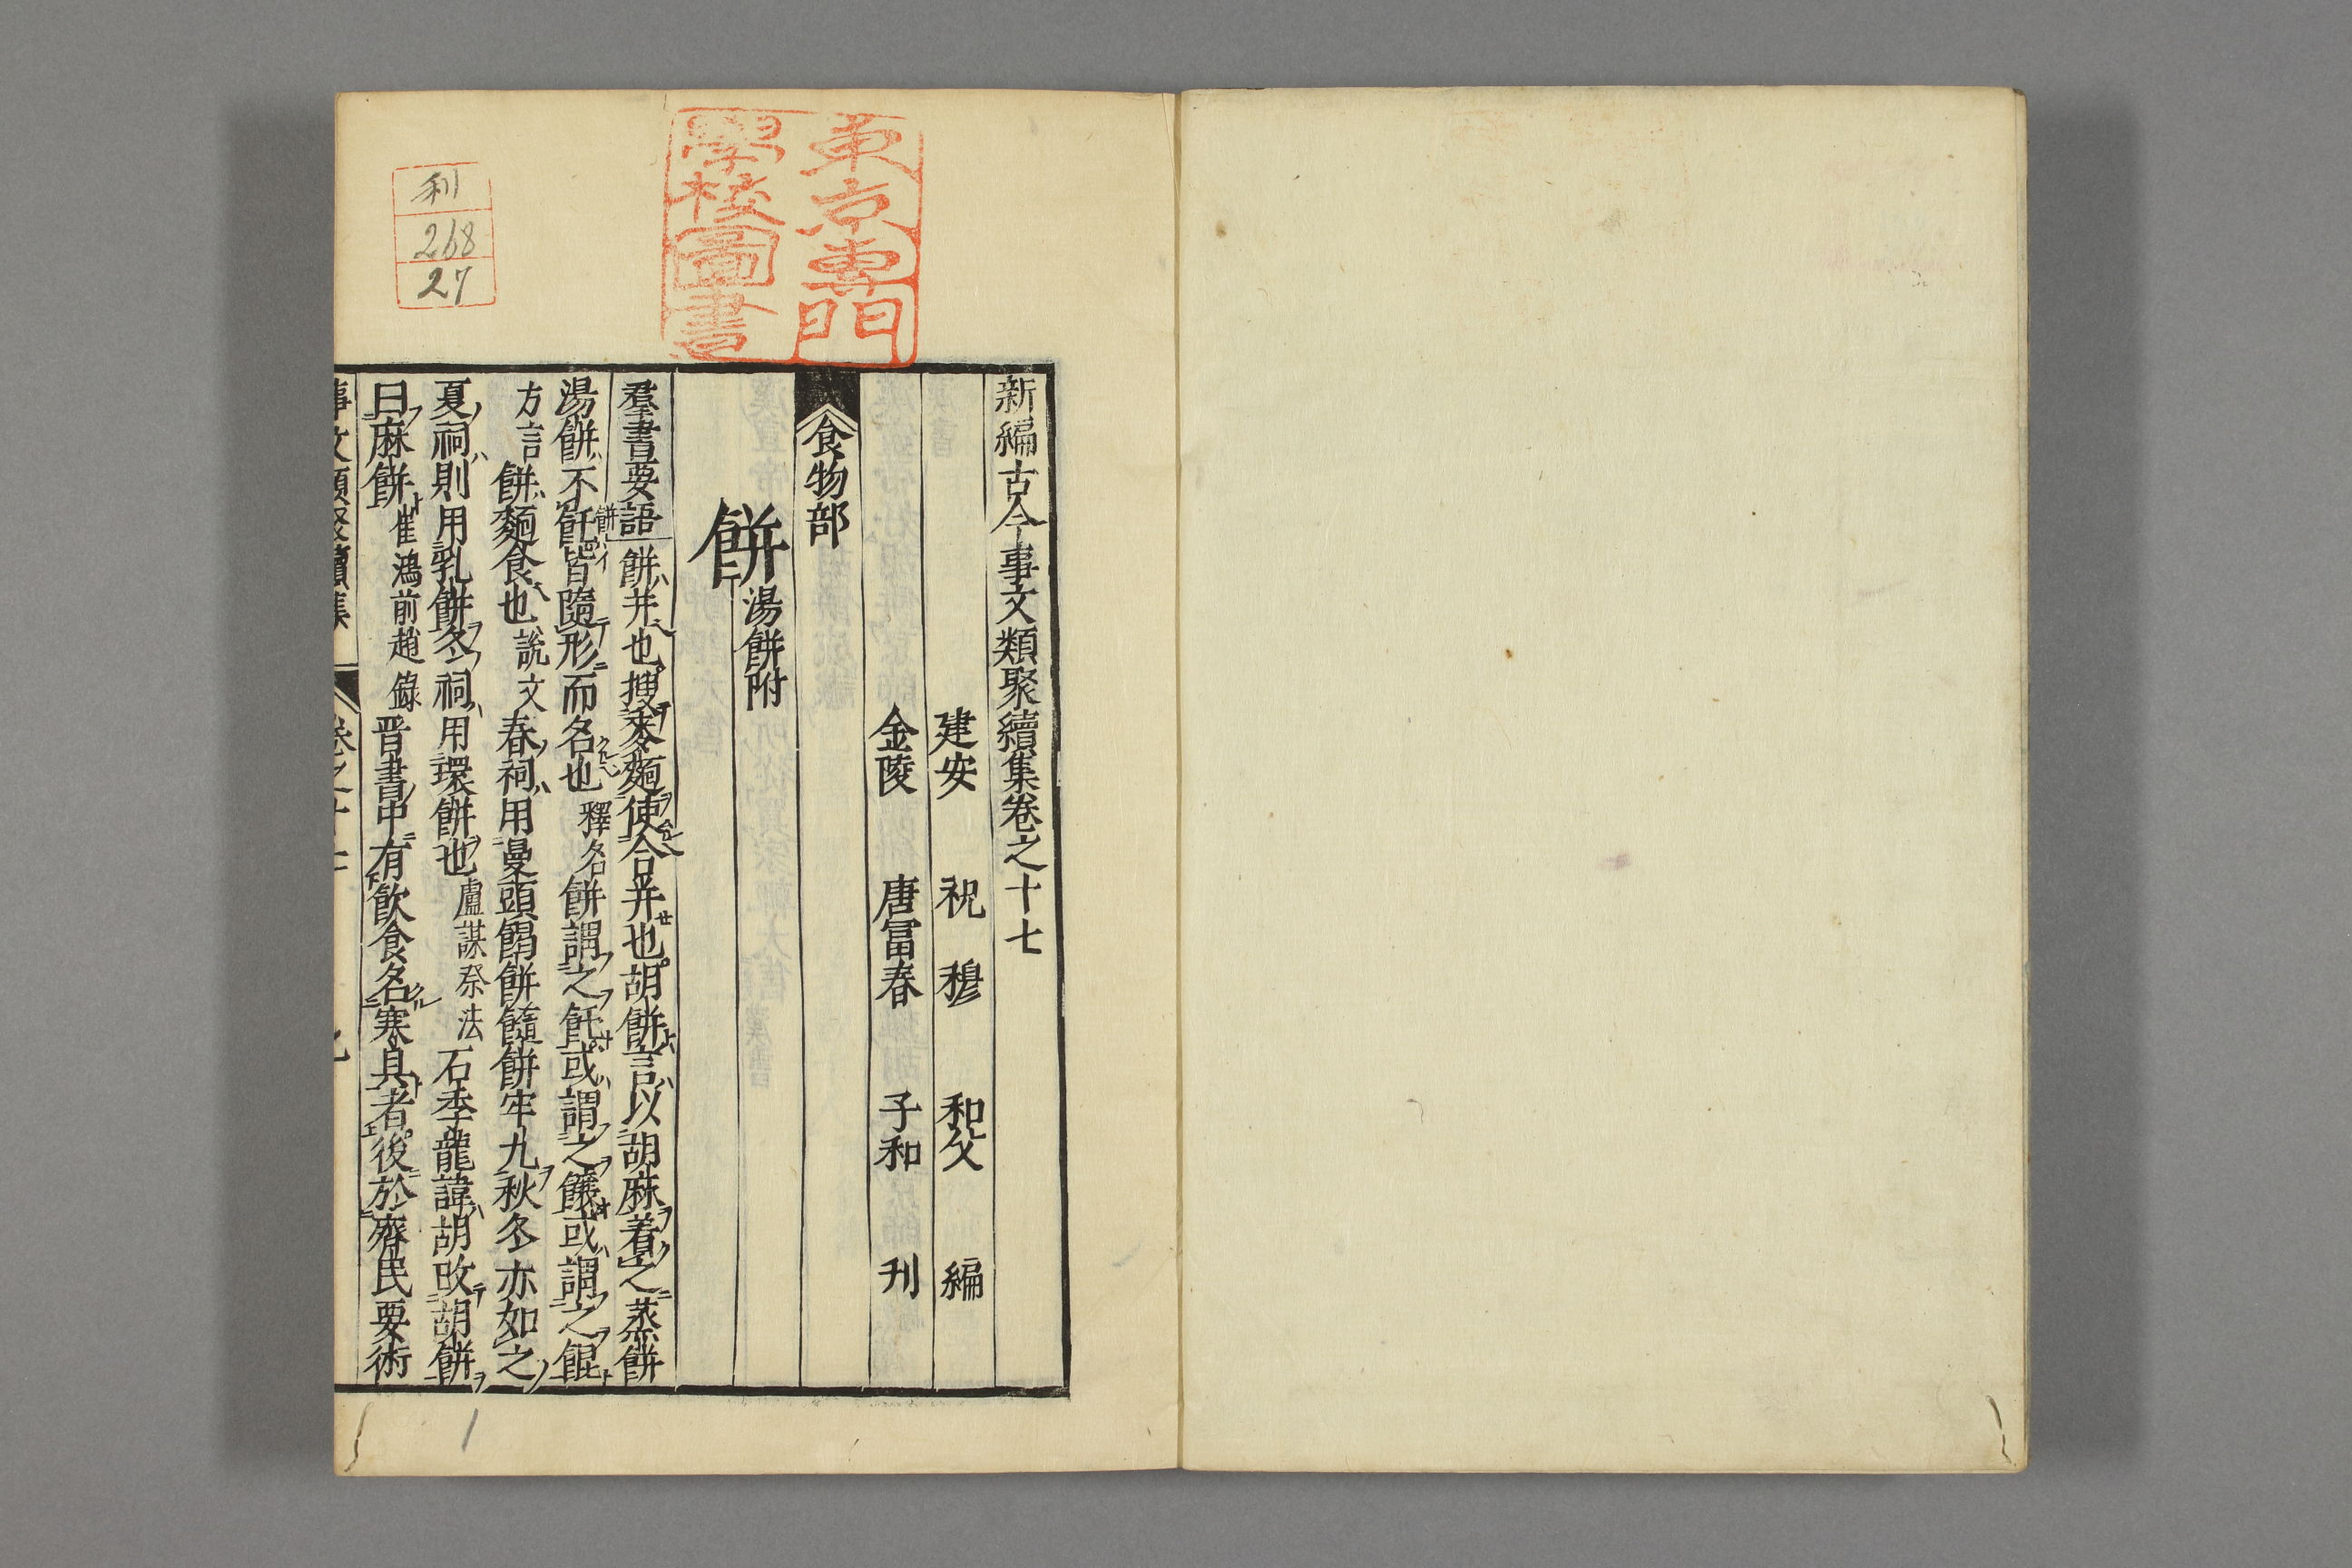 新編古今事文類聚續集卷之十七
建安 祝 穆 和父 編
金陵 唐冨春 子和 刊
食物部
餅 湯餅附
羣書要語 餅井也搜麥麵使合并也胡餅言以胡麻着之蒸餅
湯餅不飥皆隨形而名也釋名餅謂之飥或謂之餦或謂之餛
方言餅麵食也說文春祠用曼頭餲餅䭉餅牢九秋冬亦如之
夏祠則用乳餅冬祠用環餅也盧諶祭法石季龍諱胡改胡餅
曰麻餅崔鴻前趙錄晋書中有飲食名寒具者後於齊民要術
事文類聚續集 卷之十七
東京專門
學校圖書
利
268
27